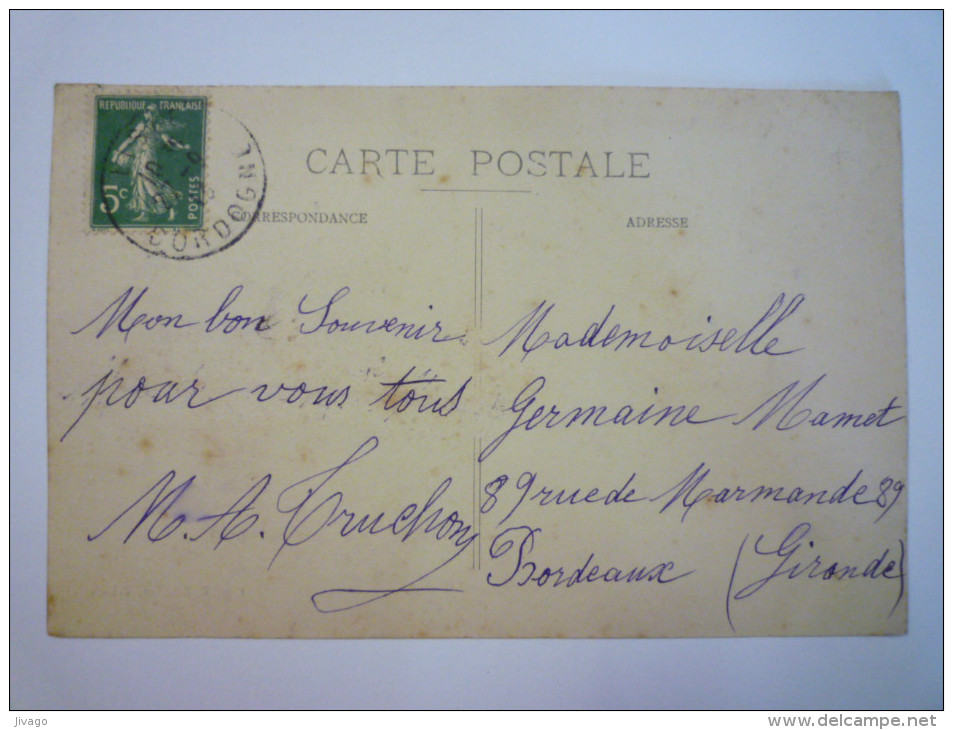 REPUBLIQUE FRANÇAISE
5c
POSTES
DORDOGNE
CARTE POSTALE
CORRESPONDANCE
ADRESSE
Mon bon Souvenir
pour vous tous
M. A. Truchon
Mademoiselle
Germaine Mamet
89 rue de Marmande 89
Bordeaux (Gironde)
Jivago
www.delcampe.net